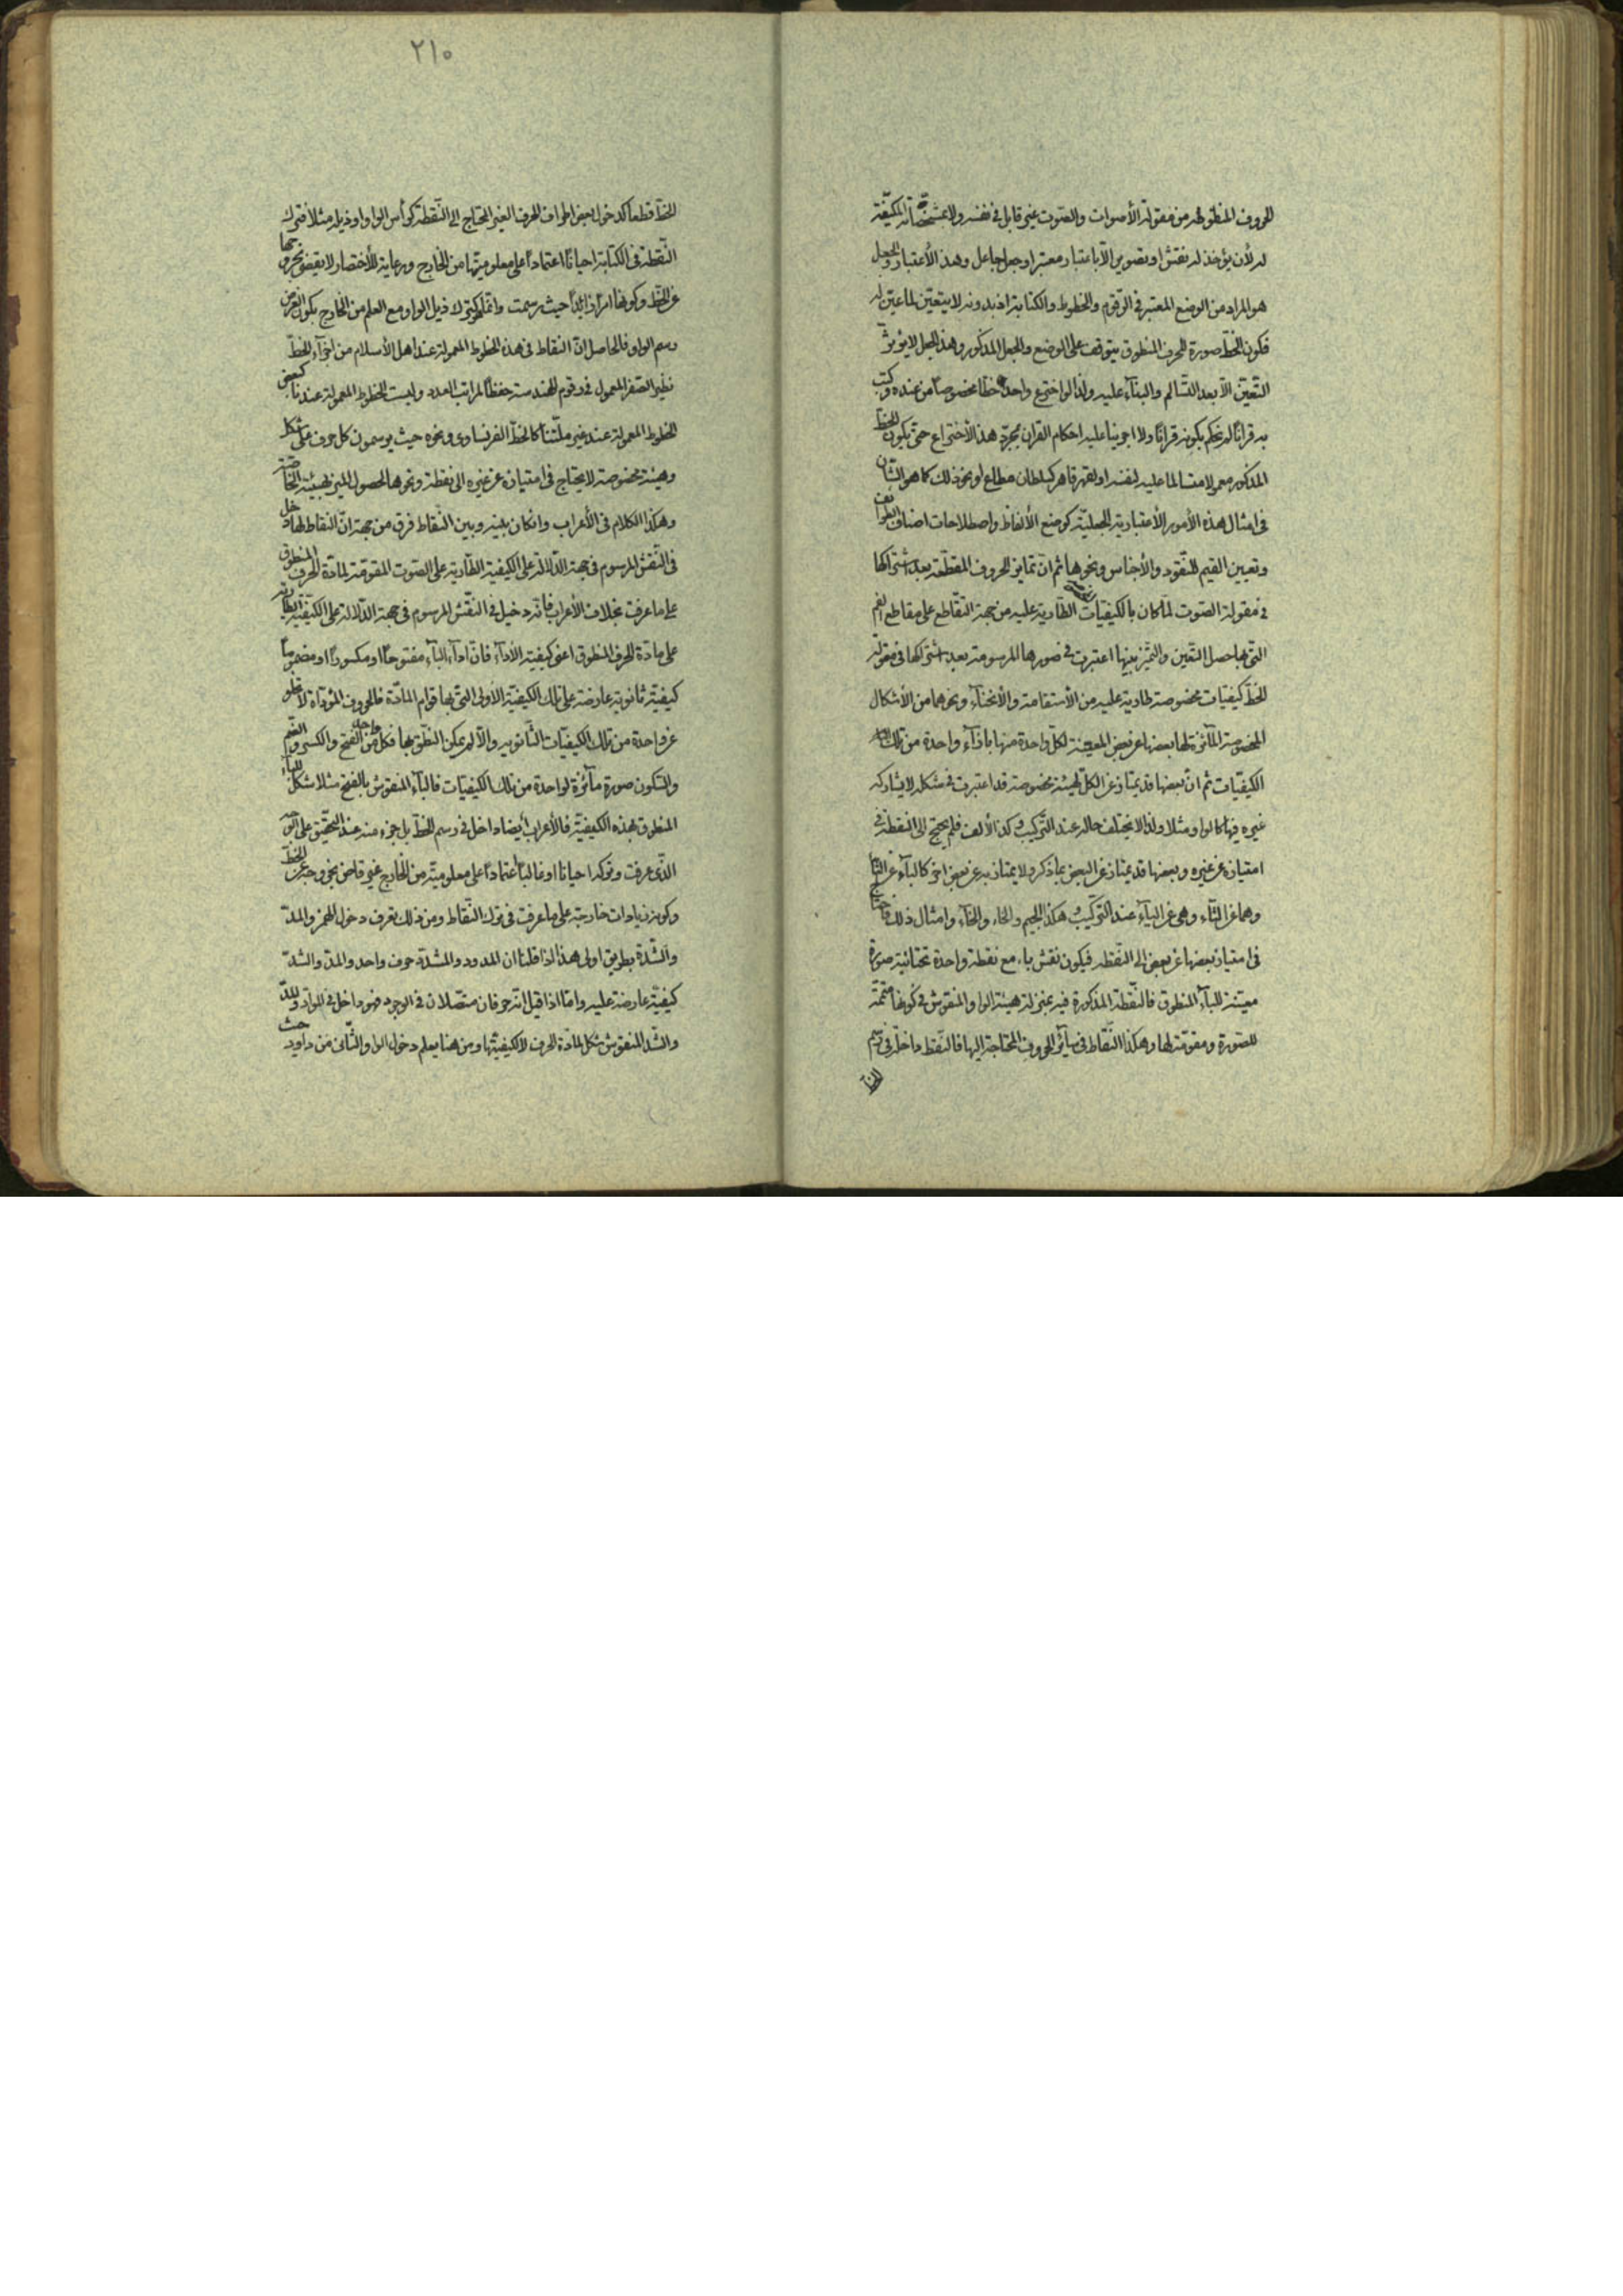 الحروف المنطوقة من مقولة الأصوات والصوت غير قابل في نفسه ولا بمشخصاته المكيفة
له لأن يؤخذ له نقش او تصوير الّا باعتبار معتبر او جعل جاعل وهذا الأعتبار والجعل
هو المراد من الوضع المعتبر في الرقوم والخطوط والكتابة اذ بدونه لا يتعيّن لما عيّن له
فكون الخطّ صورة للحرف المنطوق يتوقف على الوضع والجعل المذكور وهذا الجعل لا يؤثر
التعيّن الّا بعد التسالم والبناء عليه ولذا لو اخترع واحد خطا مخصوصا من عنده وكتب
به قرانا لم نحكم بكونه قرانًا ولا اجرينا عليه احكام القران بمجرّد هذا الأختراع حتى يكون الخط
المذكور معمولا متسالما عليه لنفسه او لقهر قاهر كسلطان مطاع او نحو ذلك كما هو الشأن
في امثال هذه الأمور الأعتبارية الجعليّة كوضع الألفاظ واصطلاحات اصناف الطوائف
وتعيين القيم للنقود والأجناس ونحوها ثم انّ تمايز الحروف المقطّعة بعد اشتراكها
في مقولة الصوت لمّا كان بالكيفيّات الطارية عليه من جهة التقاطع على مقاطع الفم
التي بها حصل التعين والتميّز بينها اعتبرت في صورها المرسومة بعد اشتراكها في مقولة
الخطّ كيفيات مخصوصة طارية عليه من الأستقامة والأنحناء ونحوهما من الأشكال
المخصوصة المائزة لها بعضها عن بعض المعينة لكل واحدة منها بازاء واحدة من تلك
الكيفيّات ثم انّ بعضها قد يمتاز عن الكلّ بهيئة مخصوصة قد اعتبرت في شكله لا يشاركه
غيره فيها كالواو مثلا ولذا لا يختلف حاله عند التركيب وكذا الألف فلم يحتج الى النقطة في
امتيازه عن غيره وبعضها قد يمتاز عن البعض بما ذكر ولا يمتاز به عن بعض اخر كالباء عن التاء
وهما عن الثاء وهي عن الياء عند التركيب وهكذا الجيم والحاء والخاء وامثال ذلك فاحتاج
في امتياز بعضها عن بعض الى النقطة فيكون نقش باء مع نقطة واحدة تحتانية صورة
معيّنة للباء المنطوق فالنقطة المذكورة فيه بمنزلة هيئة الواو المنقوش في كونها متمّمة
للصورة ومقومة لها وهكذا النقاط في سائر الحروف المحتاجة اليها فالنقط داخلة في رسم
الخط
٢١٠
الخط قطعا كدخول بعض اطراف الحرف الغير المحتاج الى النقطة كرأس الواو او ذيله مثلا فترك
النقطة في الكتابة احيانًا اعتمادًا على معلوميّتها من الخارج ورعاية للأختصار لا يقضي بخروجها
عن الخط وكونها امرا زائدًا حيث رسمت وانما هو كترك ذيل الواو مع العلم من الخارج بكون الغرض
رسم الواو فالحاصل انّ النقاط في هذه الخطوط المعمولة عند اهل الأسلام من اجزاء الخط
نظير الصفر المعمول في رقوم الهندسة حفظا لمراتب العدد وليست الخطوط المعمولة عندنا كبعض
الخطوط المعمولة عند غير ملّتنا كالخط الفرنساوي ونحوه حيث يرسمون كل حرف على شكل
وهيئة مخصوصة لا يحتاج في امتيازه عن غيره الى نقطة ونحوها لحصول الميز بهيئته الخاصّة
وهكذا الكلام في الأعراب وان كان بينه وبين النقاط فرق من جهة انّ النقاط لها دخل
في النقش المرسوم في جهة الدلالة على الكيفية الطارية على الصوت المقومة لمادّة الحرف المنطوق
على ما عرفت بخلاف الأعراب فانّه دخيل في النقش المرسوم في جهة الدلالة على الكيفيّة الطارية
على مادّة الحرف المنطوق اعنى كيفية الأداء فانّ اداء الباء مفتوحًا او مكسورًا او مضمومًا
كيفيّة ثانوية عارضة على تلك الكيفيّة الأولى التي بها قوام المادّة فالحروف المؤداة لا تخلو
عن واحدة من تلك الكيفيّات الثانوية والّا لم يمكن النطق بها فكل واحد من الفتح والكسر والضّم
والسكون صورة مائزة لواحدة من تلك الكيفيات فالباء المنقوش بالفتح مثلا شكل للباء
المنطوق بهذه الكيفيّة فالأعراب ايضا داخل في رسم الخطّ بل جزء منه عند التحقيق على الوجه
الذى عرفت وتركه احيانا او غالبا اعتمادًا على معلوميته من الخارج غير قاض بخروجه عن الخطّ
وكونه زيادات خارجة على ما عرفت في ترك النقاط ومن ذلك تعرف دخول الهمز والمدّ
والشدّة بطريق اولى هذا اذا قلنا ان الممدود والمشدّد حرف واحد والمد والشدّ
كيفيّة عارضة عليه وامّا اذا قيل انه حرفان متصلان في الوجود فهو داخل في الموادّ والمدّ
والشدّ المنقوش شكل لمادّة الحرف لا لكيفيتها ومن هنا يعلم دخول الواو الثّانى من داود حيث